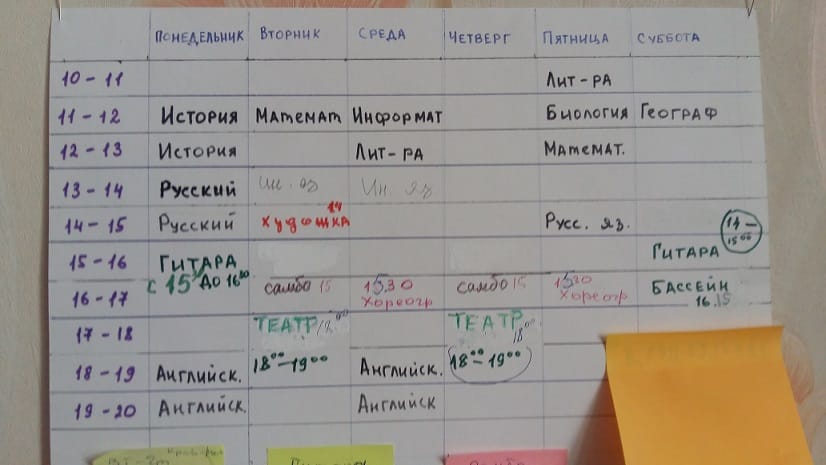 ПОНЕДЕЛЬНИК ВТОРНИК СРЕДА ЧЕТВЕРГ ПЯТНИЦА СУББОТА
10 - 11 ЛИТ-РА
11 - 12 ИСТОРИЯ МАТЕМАТ ИНФОРМАТ БИОЛОГИЯ ГЕОГРАФ
12 - 13 ИСТОРИЯ ЛИТ-РА МАТЕМАТ.
13 - 14 РУССКИЙ Ин. яз Ин. яз
14 - 15 РУССКИЙ ХУДОЖКА 14 РУСС. ЯЗ. 14 - 15 00
15 - 16 ГИТАРА ГИТАРА
С 15 ДО 16
16 - 17 самбо 15 15.30 самбо 15 15 30 БАССЕЙН
Хореогр Хореогр 16.15
17 - 18 ТЕАТР 18 00 ТЕАТР 18 00
18 - 19 АНГЛИЙСК. 18 00 - 19 00 АНГЛИЙСК. 18 00 - 19 00
19 - 20 АНГЛИЙСК. АНГЛИЙСК